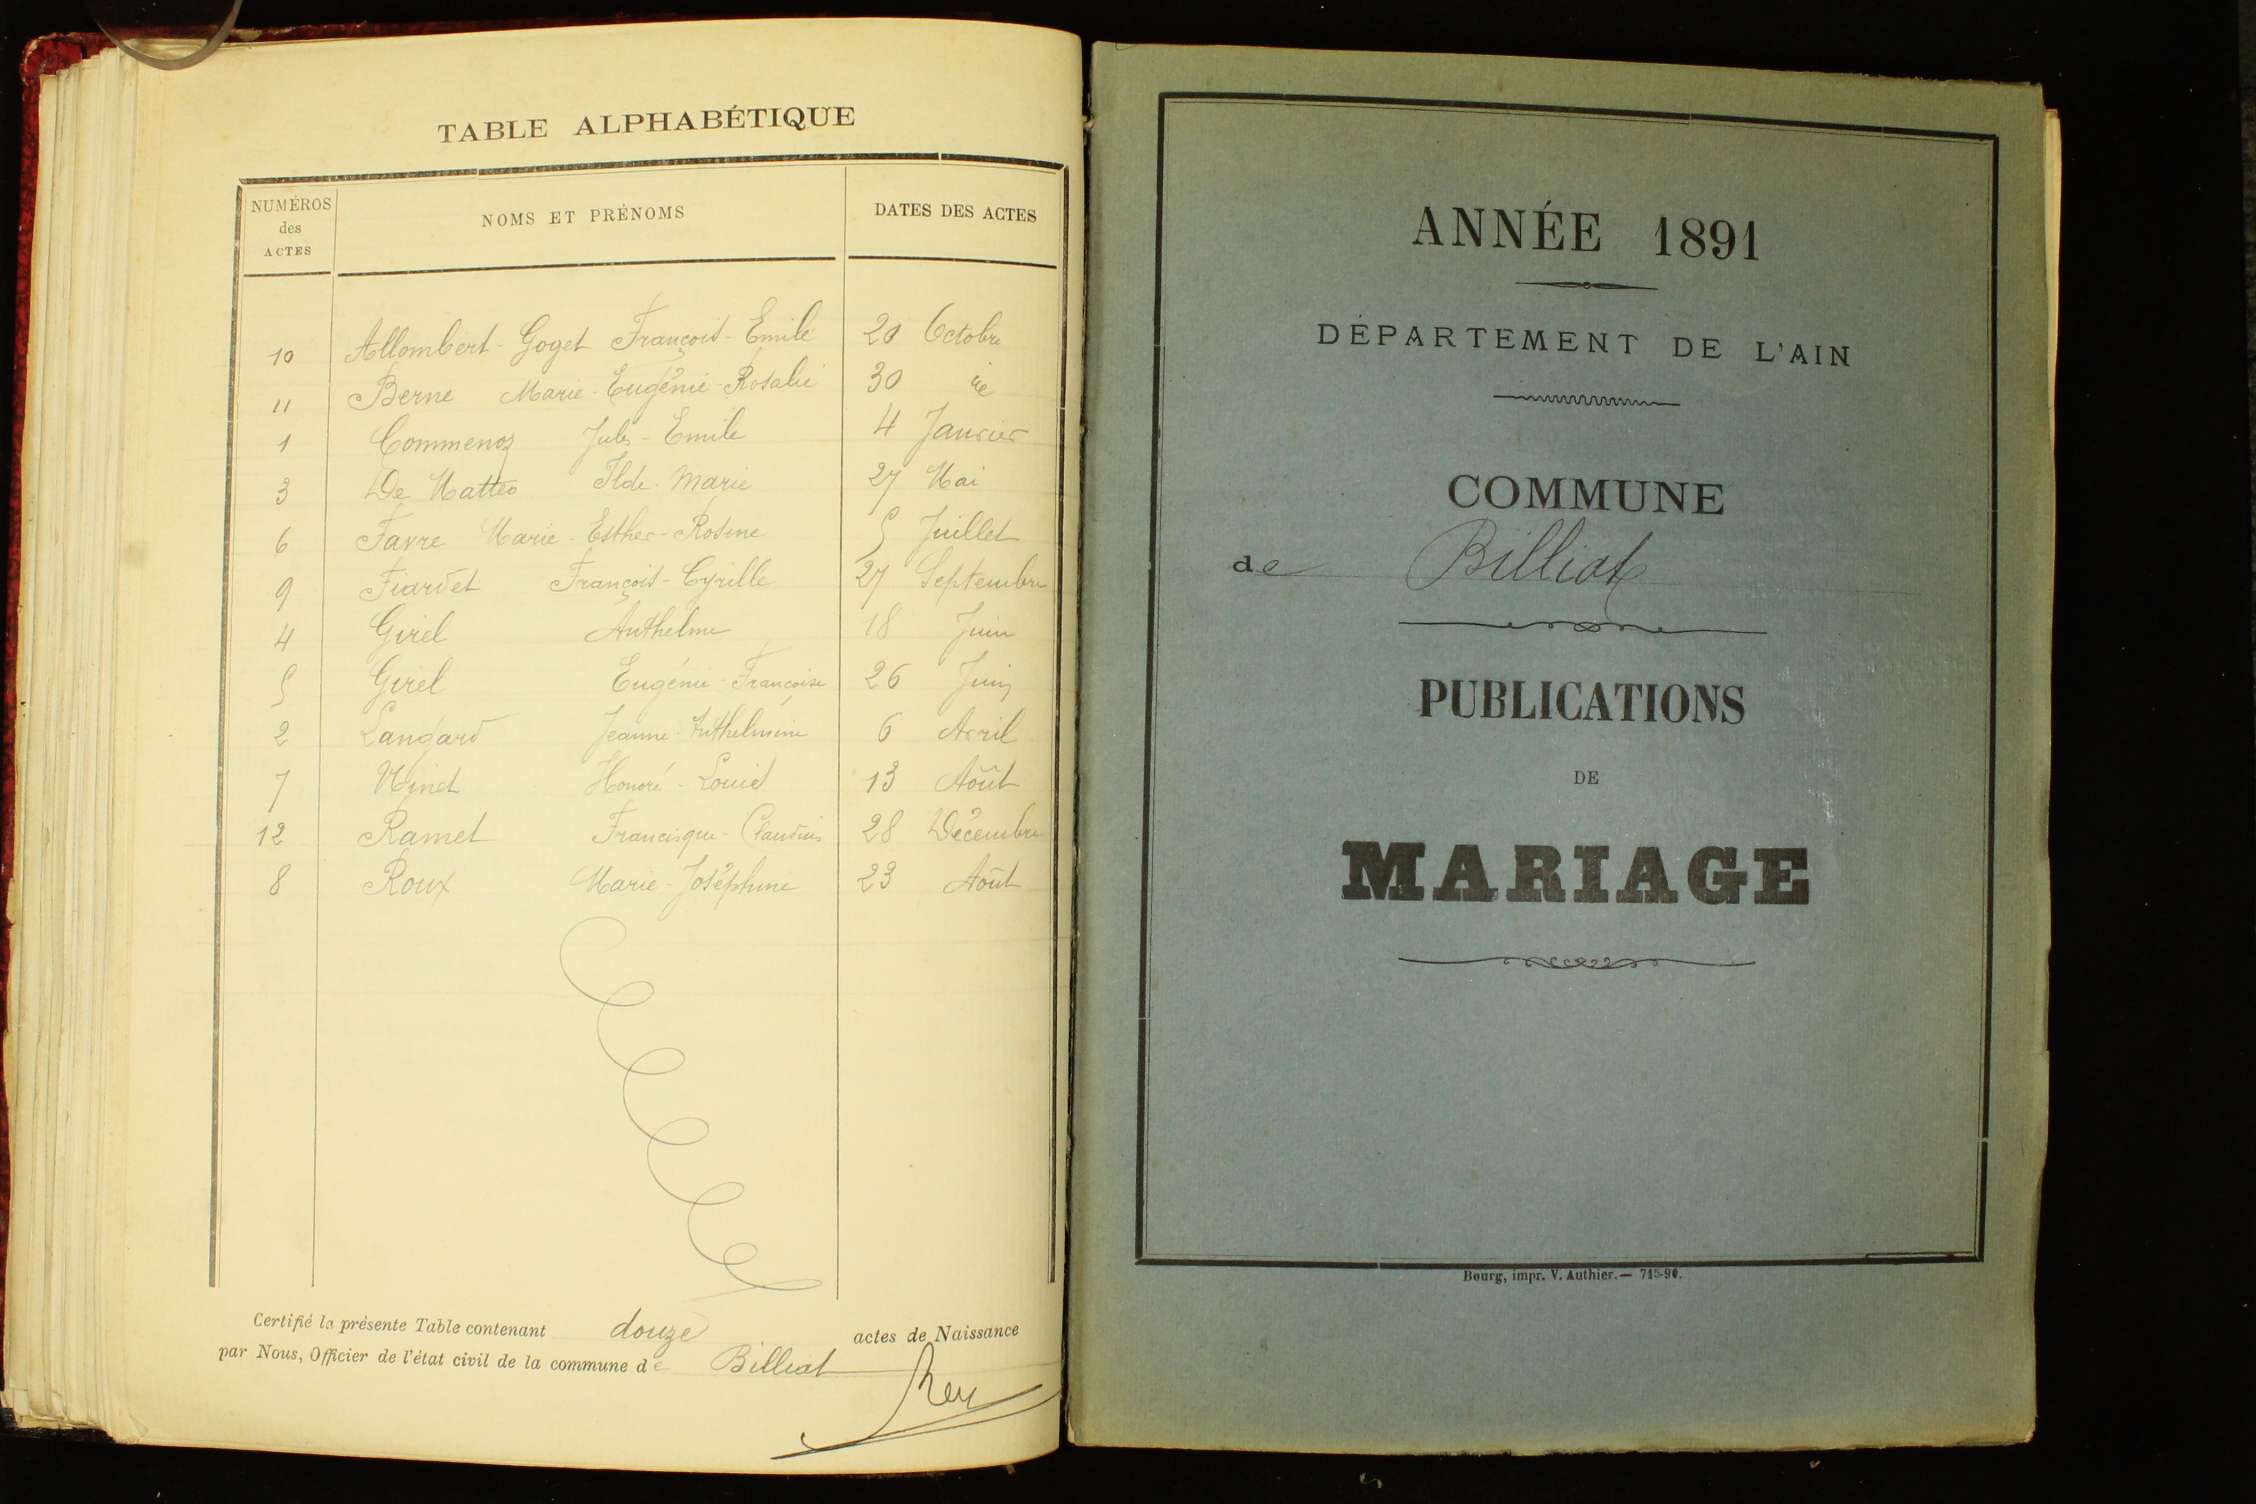 TABLE ALPHABÉTIQUE
NUMÉROS
des
ACTES
NOMS ET PRÉNOMS
DATES DES ACTES
10 Allombert-Goget François-Emile 20 Octobre
11 Berne Marie-Eugénie-Rosalie 30
1 Commenoz Jules-Emile 4 Janvier
3 De Matteo Ilde-Marie 27 Mai
6 Favre Marie-Esther-Rosine 5 Juillet
9 Fiardet François-Cyrille 27 Septembre
4 Girel Anthelme 18 Juin
5 Girel Eugénie-Françoise 26 Juin
2 Langard Jeanne-Anthelmine 6 Avril
7 Minet Honoré-Louis 13 Août
12 Ramel Francisque-Claudius 28 Décembre
8 Roux Marie-Joséphine 23 Août
Certifié la présente Table contenant douze actes de Naissance
par Nous, Officier de l'état civil de la commune de Billiat
ANNÉE 1891
DÉPARTEMENT DE L'AIN
COMMUNE
de Billiat
PUBLICATIONS
DE
MARIAGE
Bourg, impr. V. Authier. — 715-90.